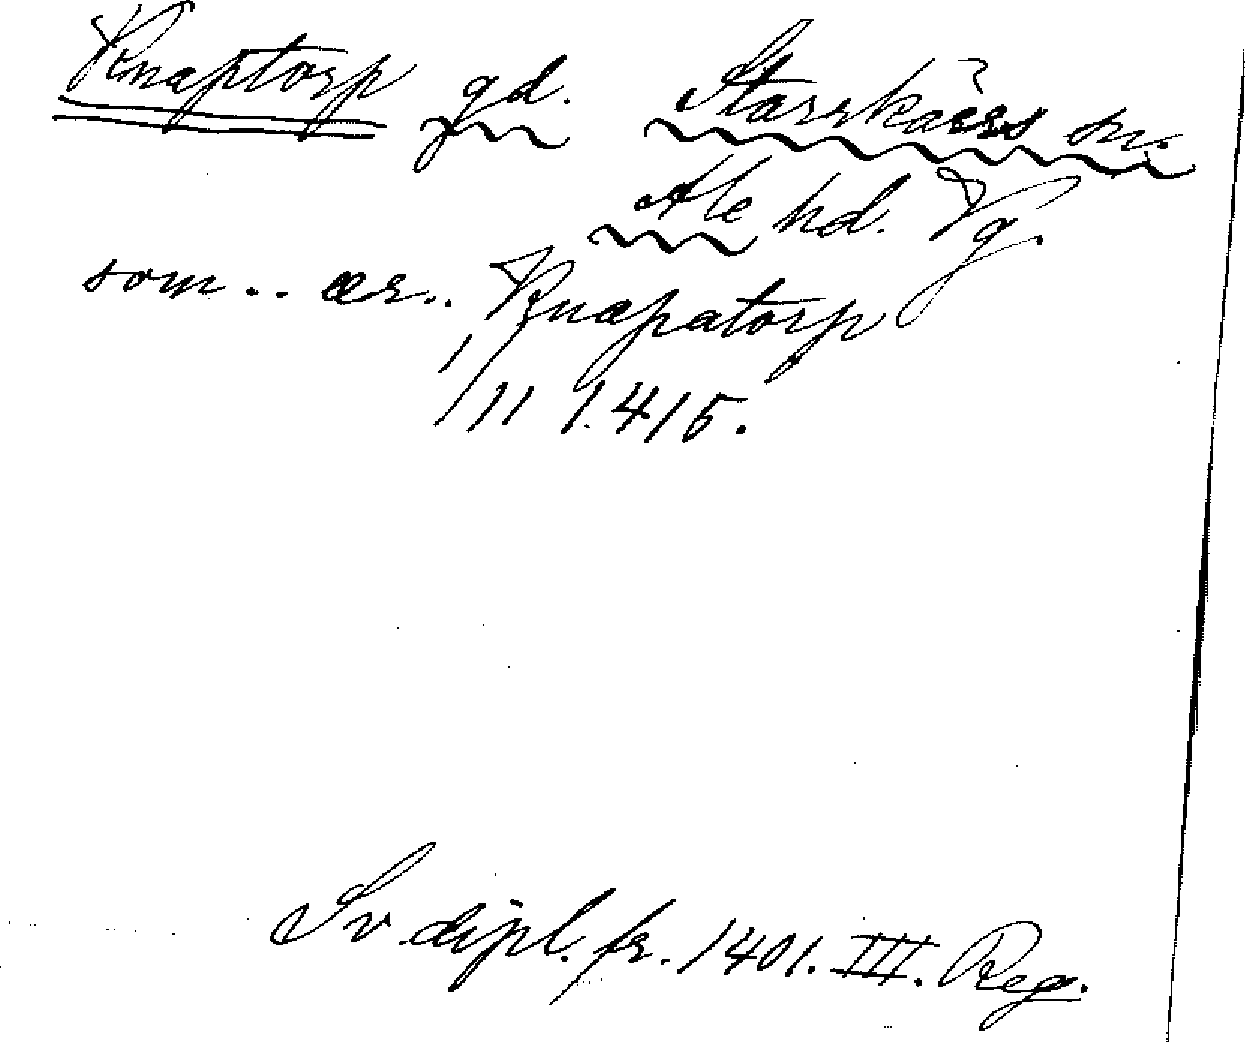 Knaptorp gd. Starrkärrs sn.
Ale hd. Vg.
som .. ær .. Knapatorp
1/11 1415.
Sv. dipl. fr. 1401. III. Reg.